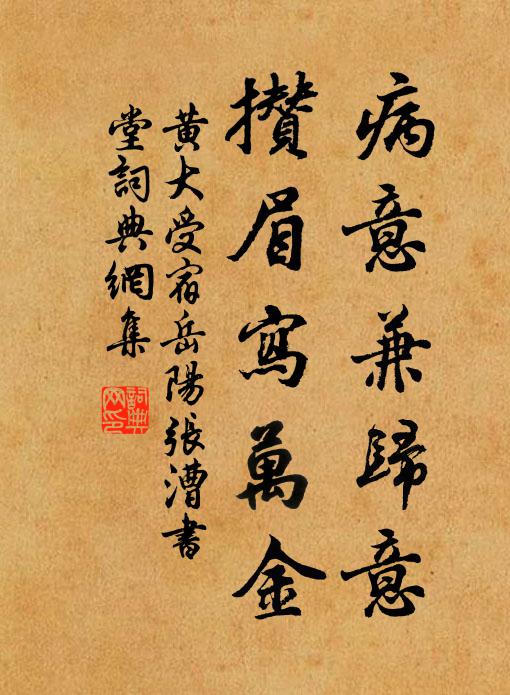 病意兼歸意
攢眉寫萬金
黃大受宿岳陽張漕書
堂詞典網集
詞典
网印